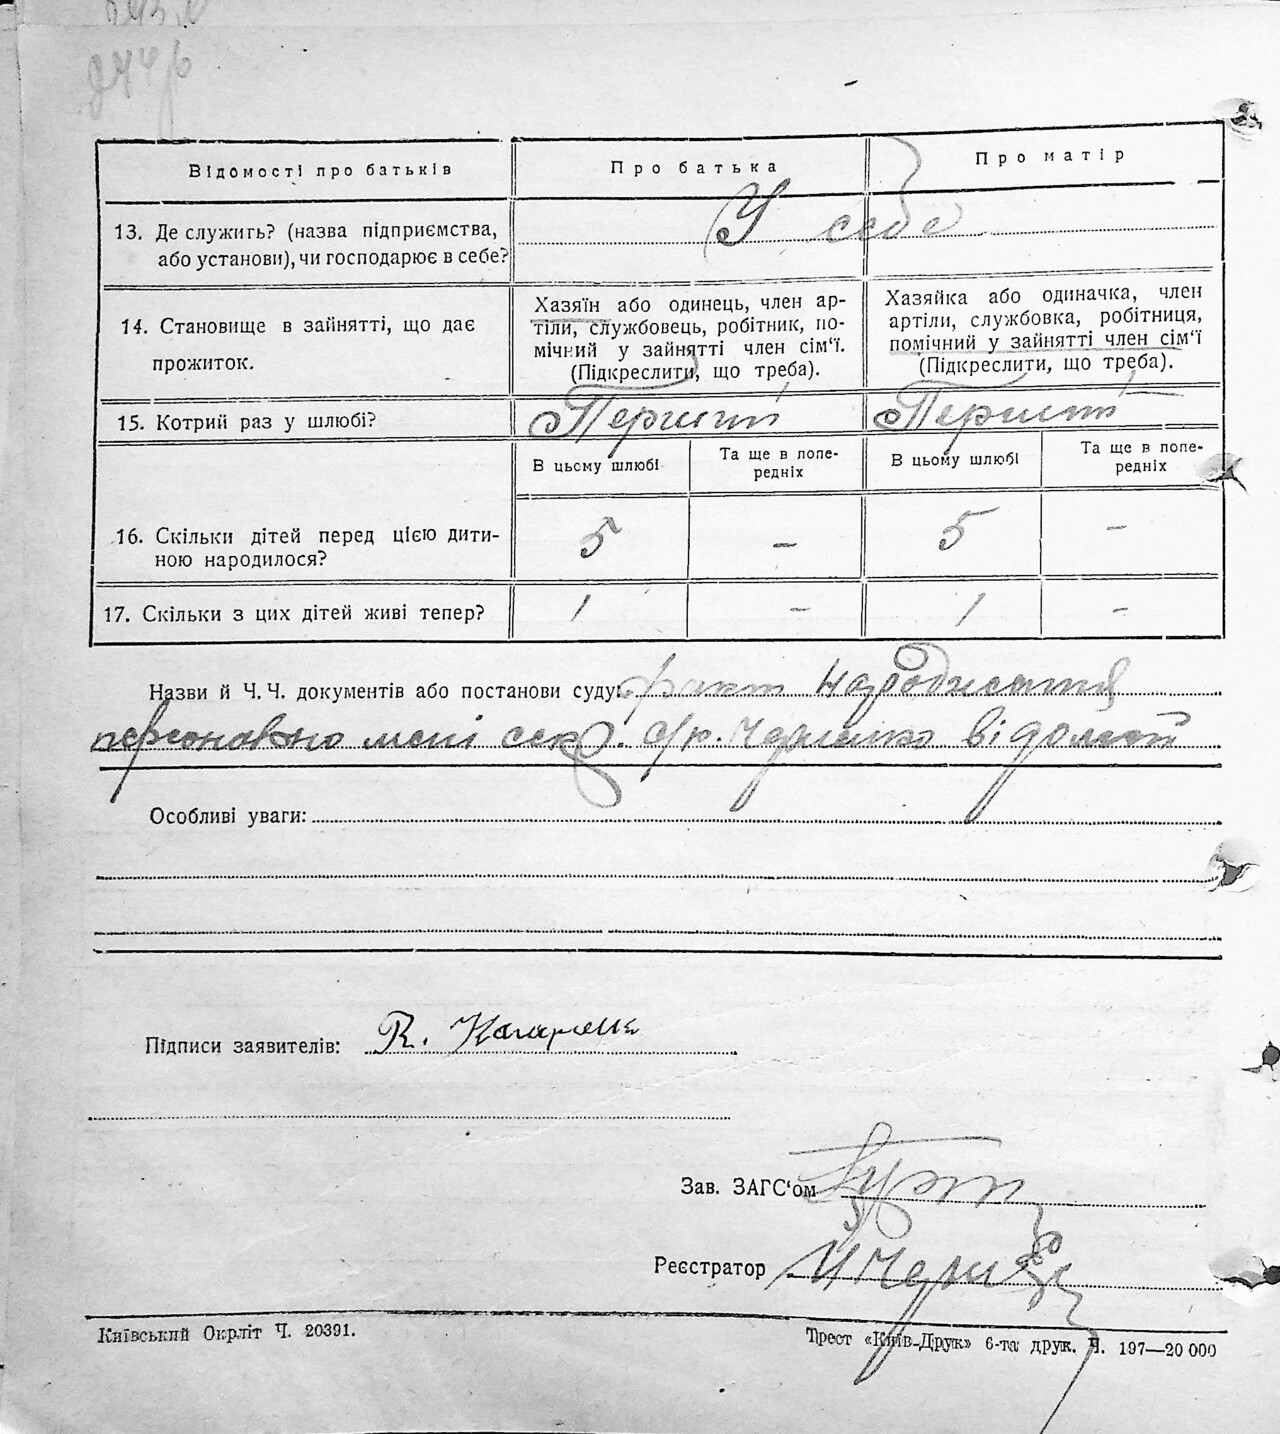 Відомості про батьків
Про батька
Про матір
13. Де служить? (назва підприємства,
або установи), чи господарює в себе?
У себе
14. Становище в зайнятті, що дає
прожиток.
Хазяїн або одинець, член ар-
тіли, службовець, робітник, по-
мічний у зайнятті член сім‘ї.
(Підкреслити, що треба).
Хазяйка або одиначка, член
артіли, службовка, робітниця,
помічний у зайнятті член сім‘ї
(Підкреслити, що треба).
15. Котрий раз у шлюбі?
Перший
Перший
В цьсму шлюбі
Та ще в попе-
редніх
В цьому шлюбі
Та ще в попе-
редніх
16. Скільки дітей перед цією дити-
ною народилося?
5 – 5 –
17. Скільки з цих дітей живі тепер?
1 – 1 –
Назви й Ч. Ч. документів або постанови суду: факт народження
персонально мені секр. с/р. відомий
Особливі уваги:
Підписи заявителів:
Зав. ЗАГС‘ом
Реєстратор
Київський Окрліт Ч. 20391.
Трест «Київ-Друк» 6-та друк. Ч. 197—20 000